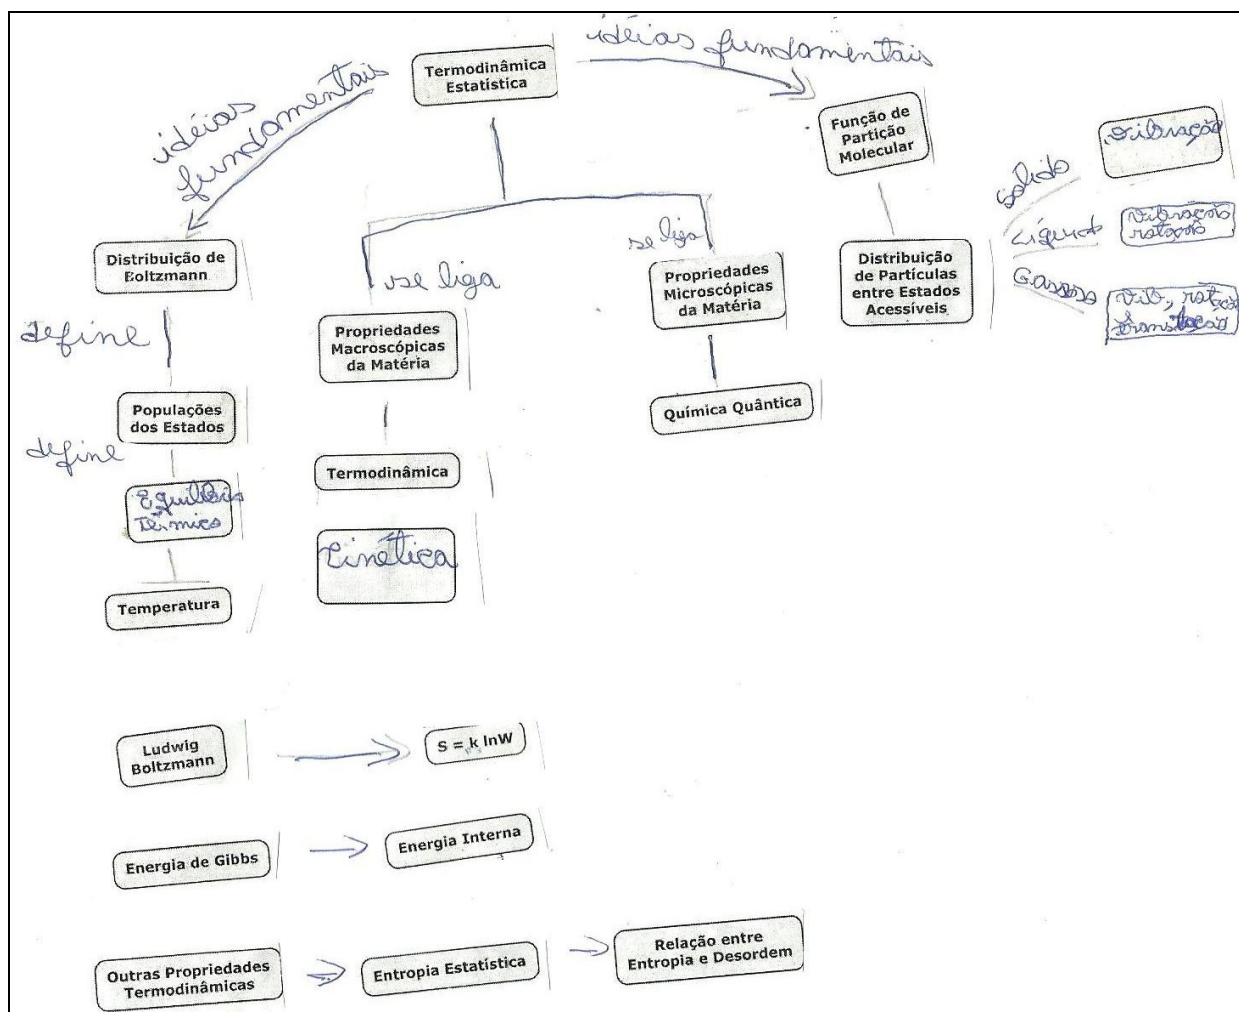 idéias fundamentais
Termodinâmica
Estatística
idéias
fundamentais
Função de
Partição
Molecular
vibração
sólido
Líquido
vibração
rotação
Gasoso
vib, rotação
translação
Distribuição de
Boltzmann
se liga
se liga
Propriedades
Microscópicas
da Matéria
Distribuição
de Partículas
entre Estados
Acessíveis
define
Propriedades
Macroscópicas
da Matéria
Populações
dos Estados
Química Quântica
define
Termodinâmica
Equilíbrio
Térmico
Cinética
Temperatura
Ludwig
Boltzmann
S = k lnW
Energia de Gibbs
Energia Interna
Outras Propriedades
Termodinâmicas
Entropia Estatística
Relação entre
Entropia e Desordem